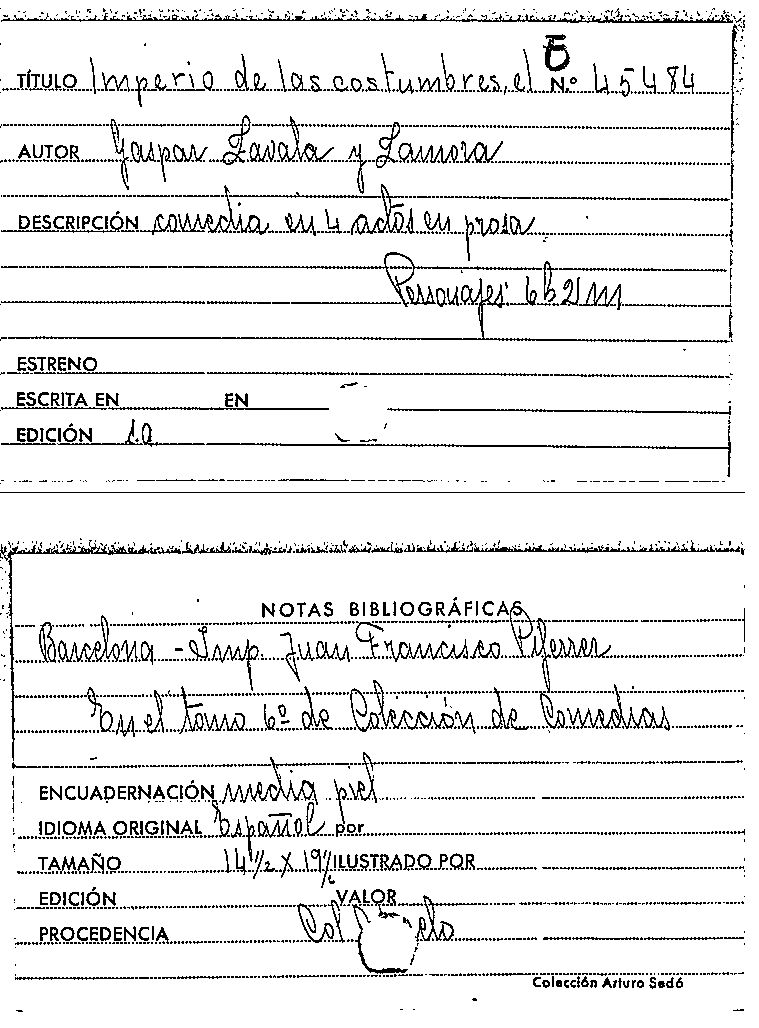 TÍTULO Imperio de las costumbres, el N.º 45484
AUTOR Gaspar Zavala y Zamora
DESCRIPCIÓN comedia en 4 actos en prosa
Personajes: 6h 2m
ESTRENO
ESCRITA EN EN
EDICIÓN 1a
NOTAS BIBLIOGRÁFICAS
Barcelona - Imp. Juan Francisco Piferrer
En el tomo 6º de Colección de Comedias
ENCUADERNACIÓN media piel
IDIOMA ORIGINAL Español por
TAMAÑO 14 1/2 X 19 1/2 ILUSTRADO POR
EDICIÓN VALOR
PROCEDENCIA Col
Colección Arturo Sedó